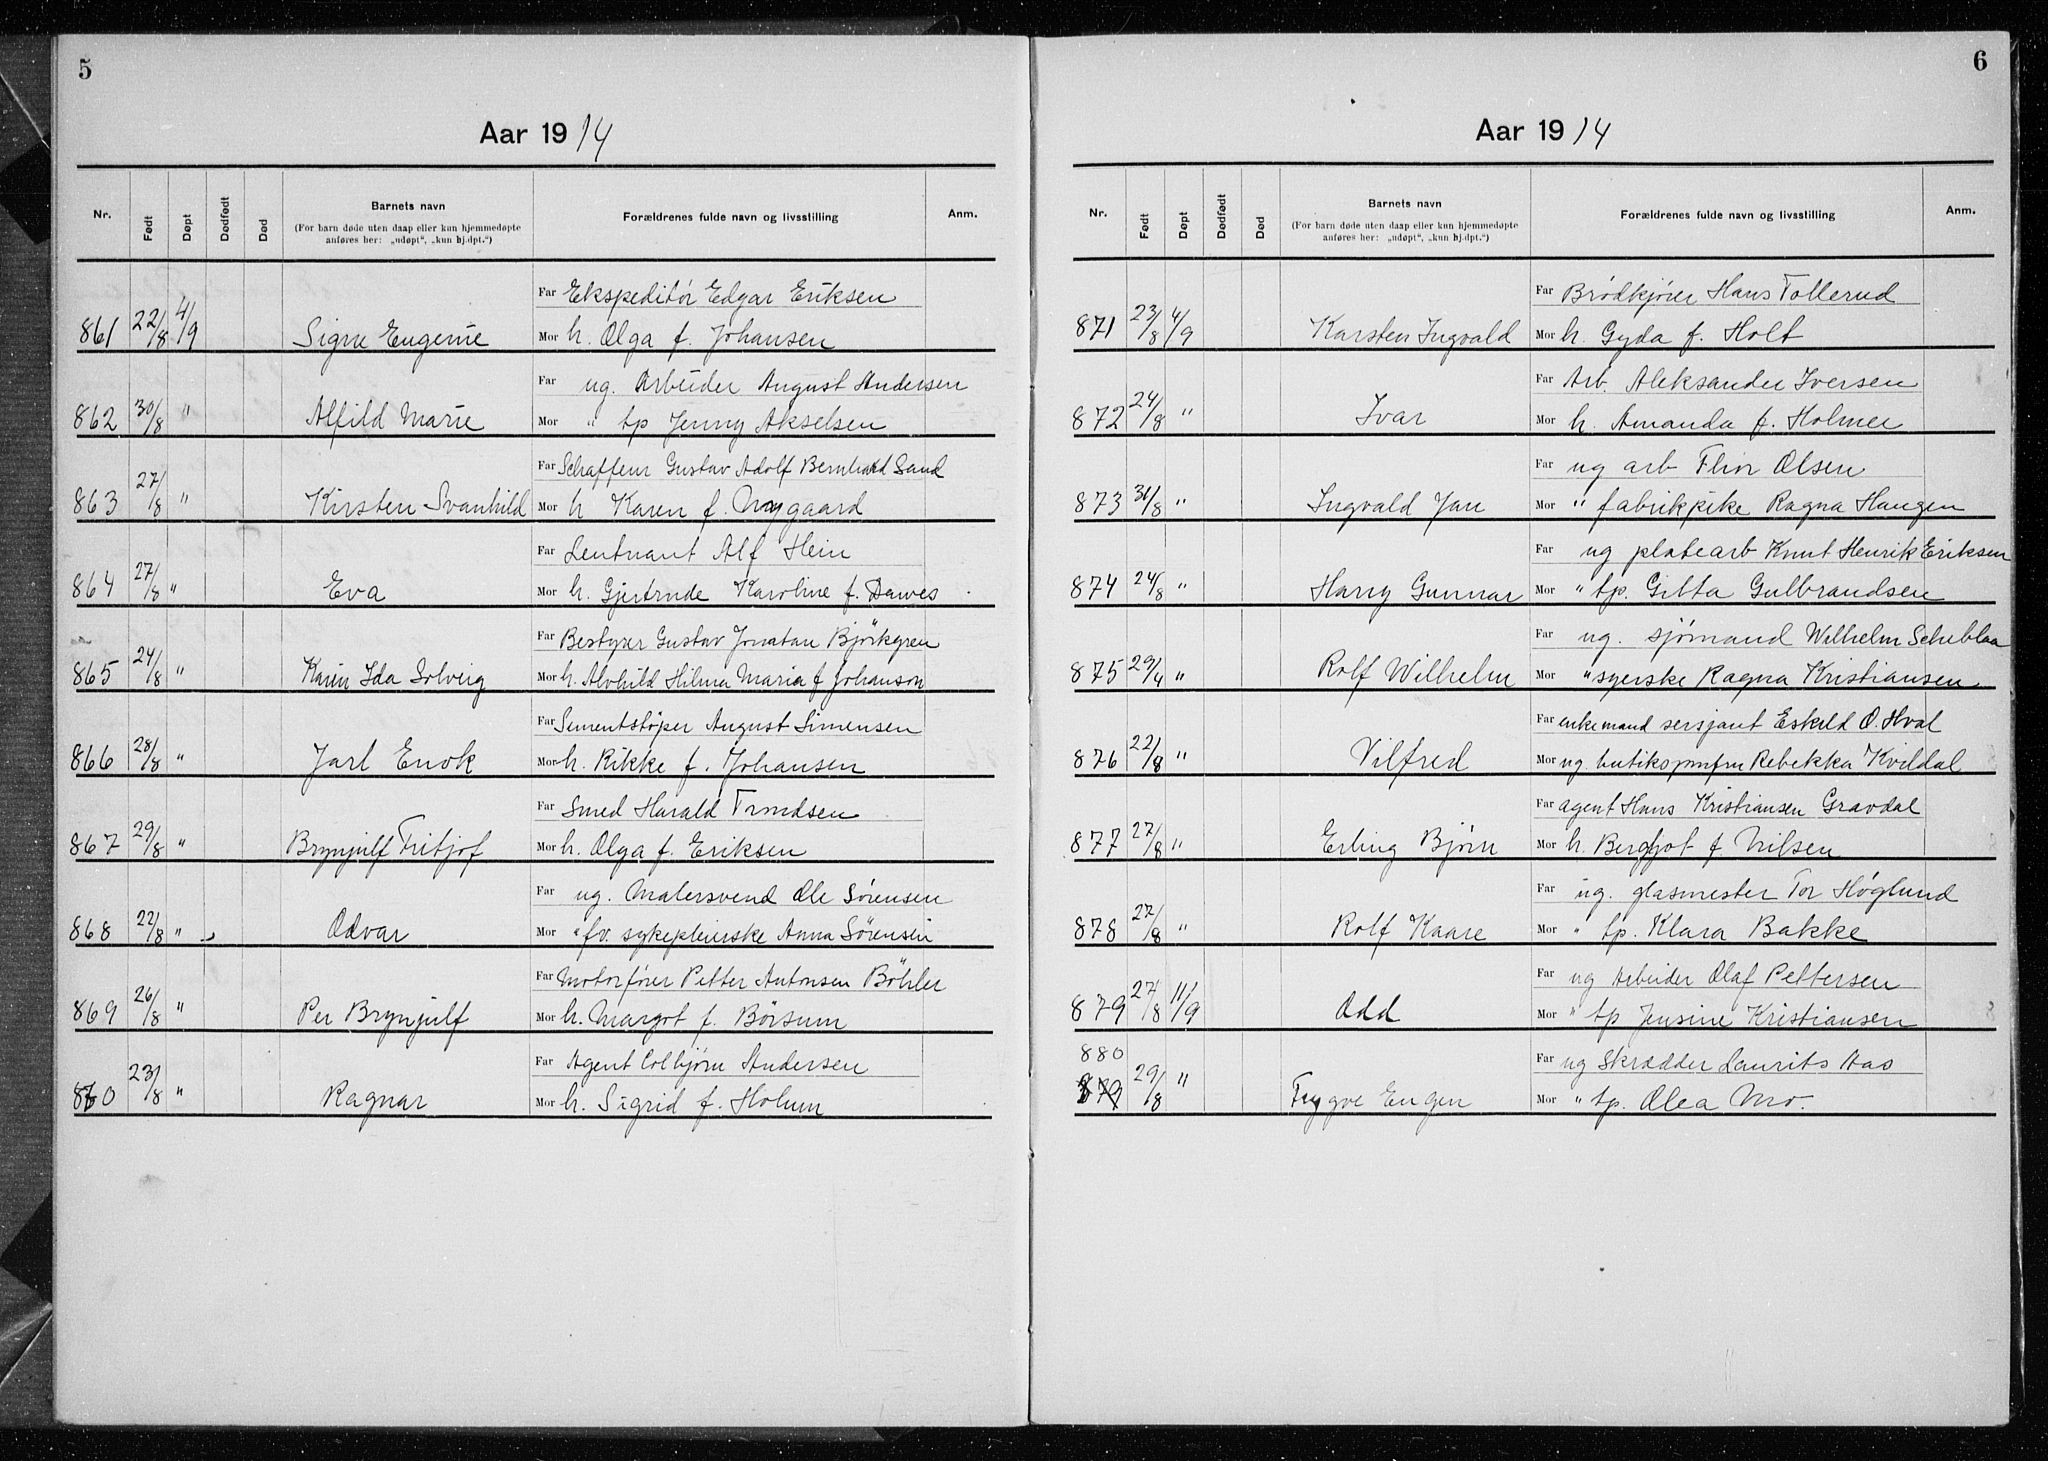 5
Aar 1914
Nr.
Født
Døpt
Dødfødt
Død
Barnets navn
(For barn døde uten daap eller kun hjemmedøpte
anføres her: „udøpt", „kun hj.dpt.")
Forældrenes fulde navn og livsstilling
Anm.
Far Ekspeditør Edgar Eriksen
861 22/8 4/9 Signe Eugenie Mor h. Olga f. Johansen
Far ug. Arbeider August Andersen
862 30/8 " Alfild Marie Mor " tp Jenny Akselsen
Far Schaffeur Gustav Adolf Bernhard Sand
863 27/8 " Kirsten Svanhild Mor h Karen f. Nygaard
Far Leutnant Alf Hein
864 27/8 " Eva Mor h. Gjertrude Karoline f. Dawes
Far Bestyrer Gustav Jonatan Björkgren
865 24/8 " Karin Ida Solveig Mor h. Alvhild Hilma Maria f Johanson
Far Sementstöper August Simensen
866 28/8 " Jarl Enok Mor h. Rikke f. Johansen
Far Smed Harald Trondsen
867 29/8 " Brynjulf Fritjof Mor h. Olga f. Eriksen
Far ug. Malersvend Ole Sörensen
868 22/8 " Odvar Mor " fv. sykepleierske Anna Sörensen
Far Motorfører Petter Antonsen Böhler
869 26/8 " Per Brynjulf Mor h. Margot f. Børsum
Far Agent Colbjørn Andersen
870 23/8 " Ragnar Mor h. Sigrid f. Holum
6
Aar 1914
Nr.
Født
Døpt
Dødfødt
Død
Barnets navn
(For barn døde uten daap eller kun hjemmedøpte
anføres her: „udøpt", „kun hj.dpt.")
Forældrenes fulde navn og livsstilling
Anm.
Far Brødkjører Hans Tollerud
871 23/8 4/9 Karsten Ingvald Mor h. Gyda f. Holt
Far Arb. Aleksander Iversen
872 24/8 " Ivar Mor h. Amanda f. Holmer
Far ug arb Thor Olsen
873 31/8 " Ingvald Jan Mor " fabrikpike Ragna Haugen
Far ug platearb Knut Henrik Eriksen
874 24/8 " Harry Gunnar Mor " tp. Gitta Gulbrandsen
Far ug. sjømand Wilhelm
875 29/4 " Rolf Wilhelm Mor " syerske Ragna Kristiansen
Far enkemand sersjant Eskild O. Hval
876 22/8 " Vilfred Mor ug. butiksjomfru Rebekka Kvildal
Far agent Hans Kristiansen Gravdal
877 27/8 " Erling Bjørn Mor h. Bergljot f. Nilsen
Far ug. glasmester Tor Høglund
878 27/8 " Rolf Kaare Mor " tp. Klara Bakke
Far ug Arbeider Olaf Pettersen
879 27/8 11/9 Odd Mor " tp Jensine Kristiansen
880 Far ug Skrædder Laurits Aas
879 29/8 " Trygve Eugen Mor " tp. Olea Mo.